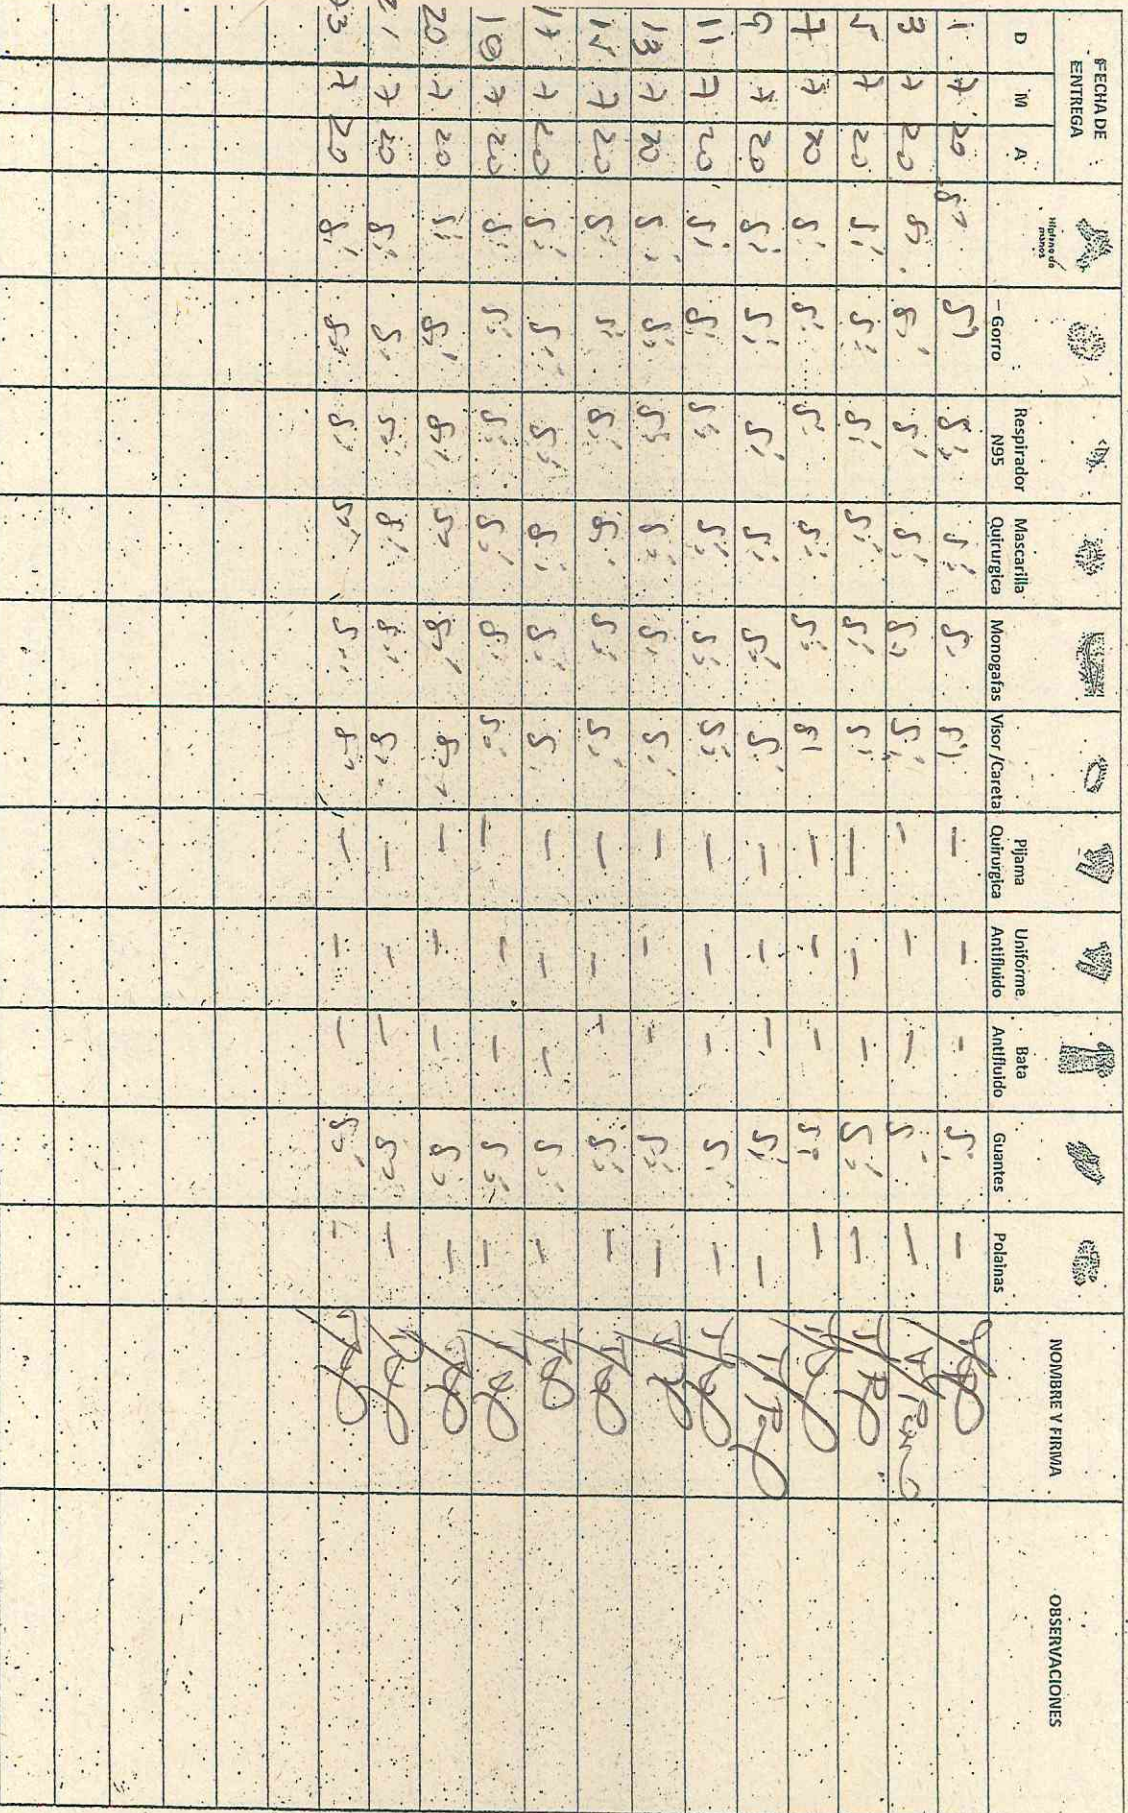 FECHA DE ENTREGA NOMBRE Y FIRMA OBSERVACIONES
D M A Higiene de manos Gorro Respirador N95 Mascarilla Quirurgica Monogafas Visor /Careta Pijama Quirurgica Uniforme Antifluido Bata Antifluido Guantes Polainas
1 7 20 si si si si si si — — — si —
3 7 20 si si si si si si — — — si —
5 7 20 si si si si si si — — — si —
7 7 20 si si si si si si — — — si —
9 7 20 si si si si si si — — — si —
11 7 20 si si si si si si — — — si —
13 7 20 si si si si si si — — — si —
15 7 20 si si si si si si — — — si —
17 7 20 si si si si si si — — — si —
19 7 20 si si si si si si — — — si —
20 7 20 si si si si si si — — — si —
21 7 20 si si si si si si — — — si —
23 7 20 si si si si si si — — — si —